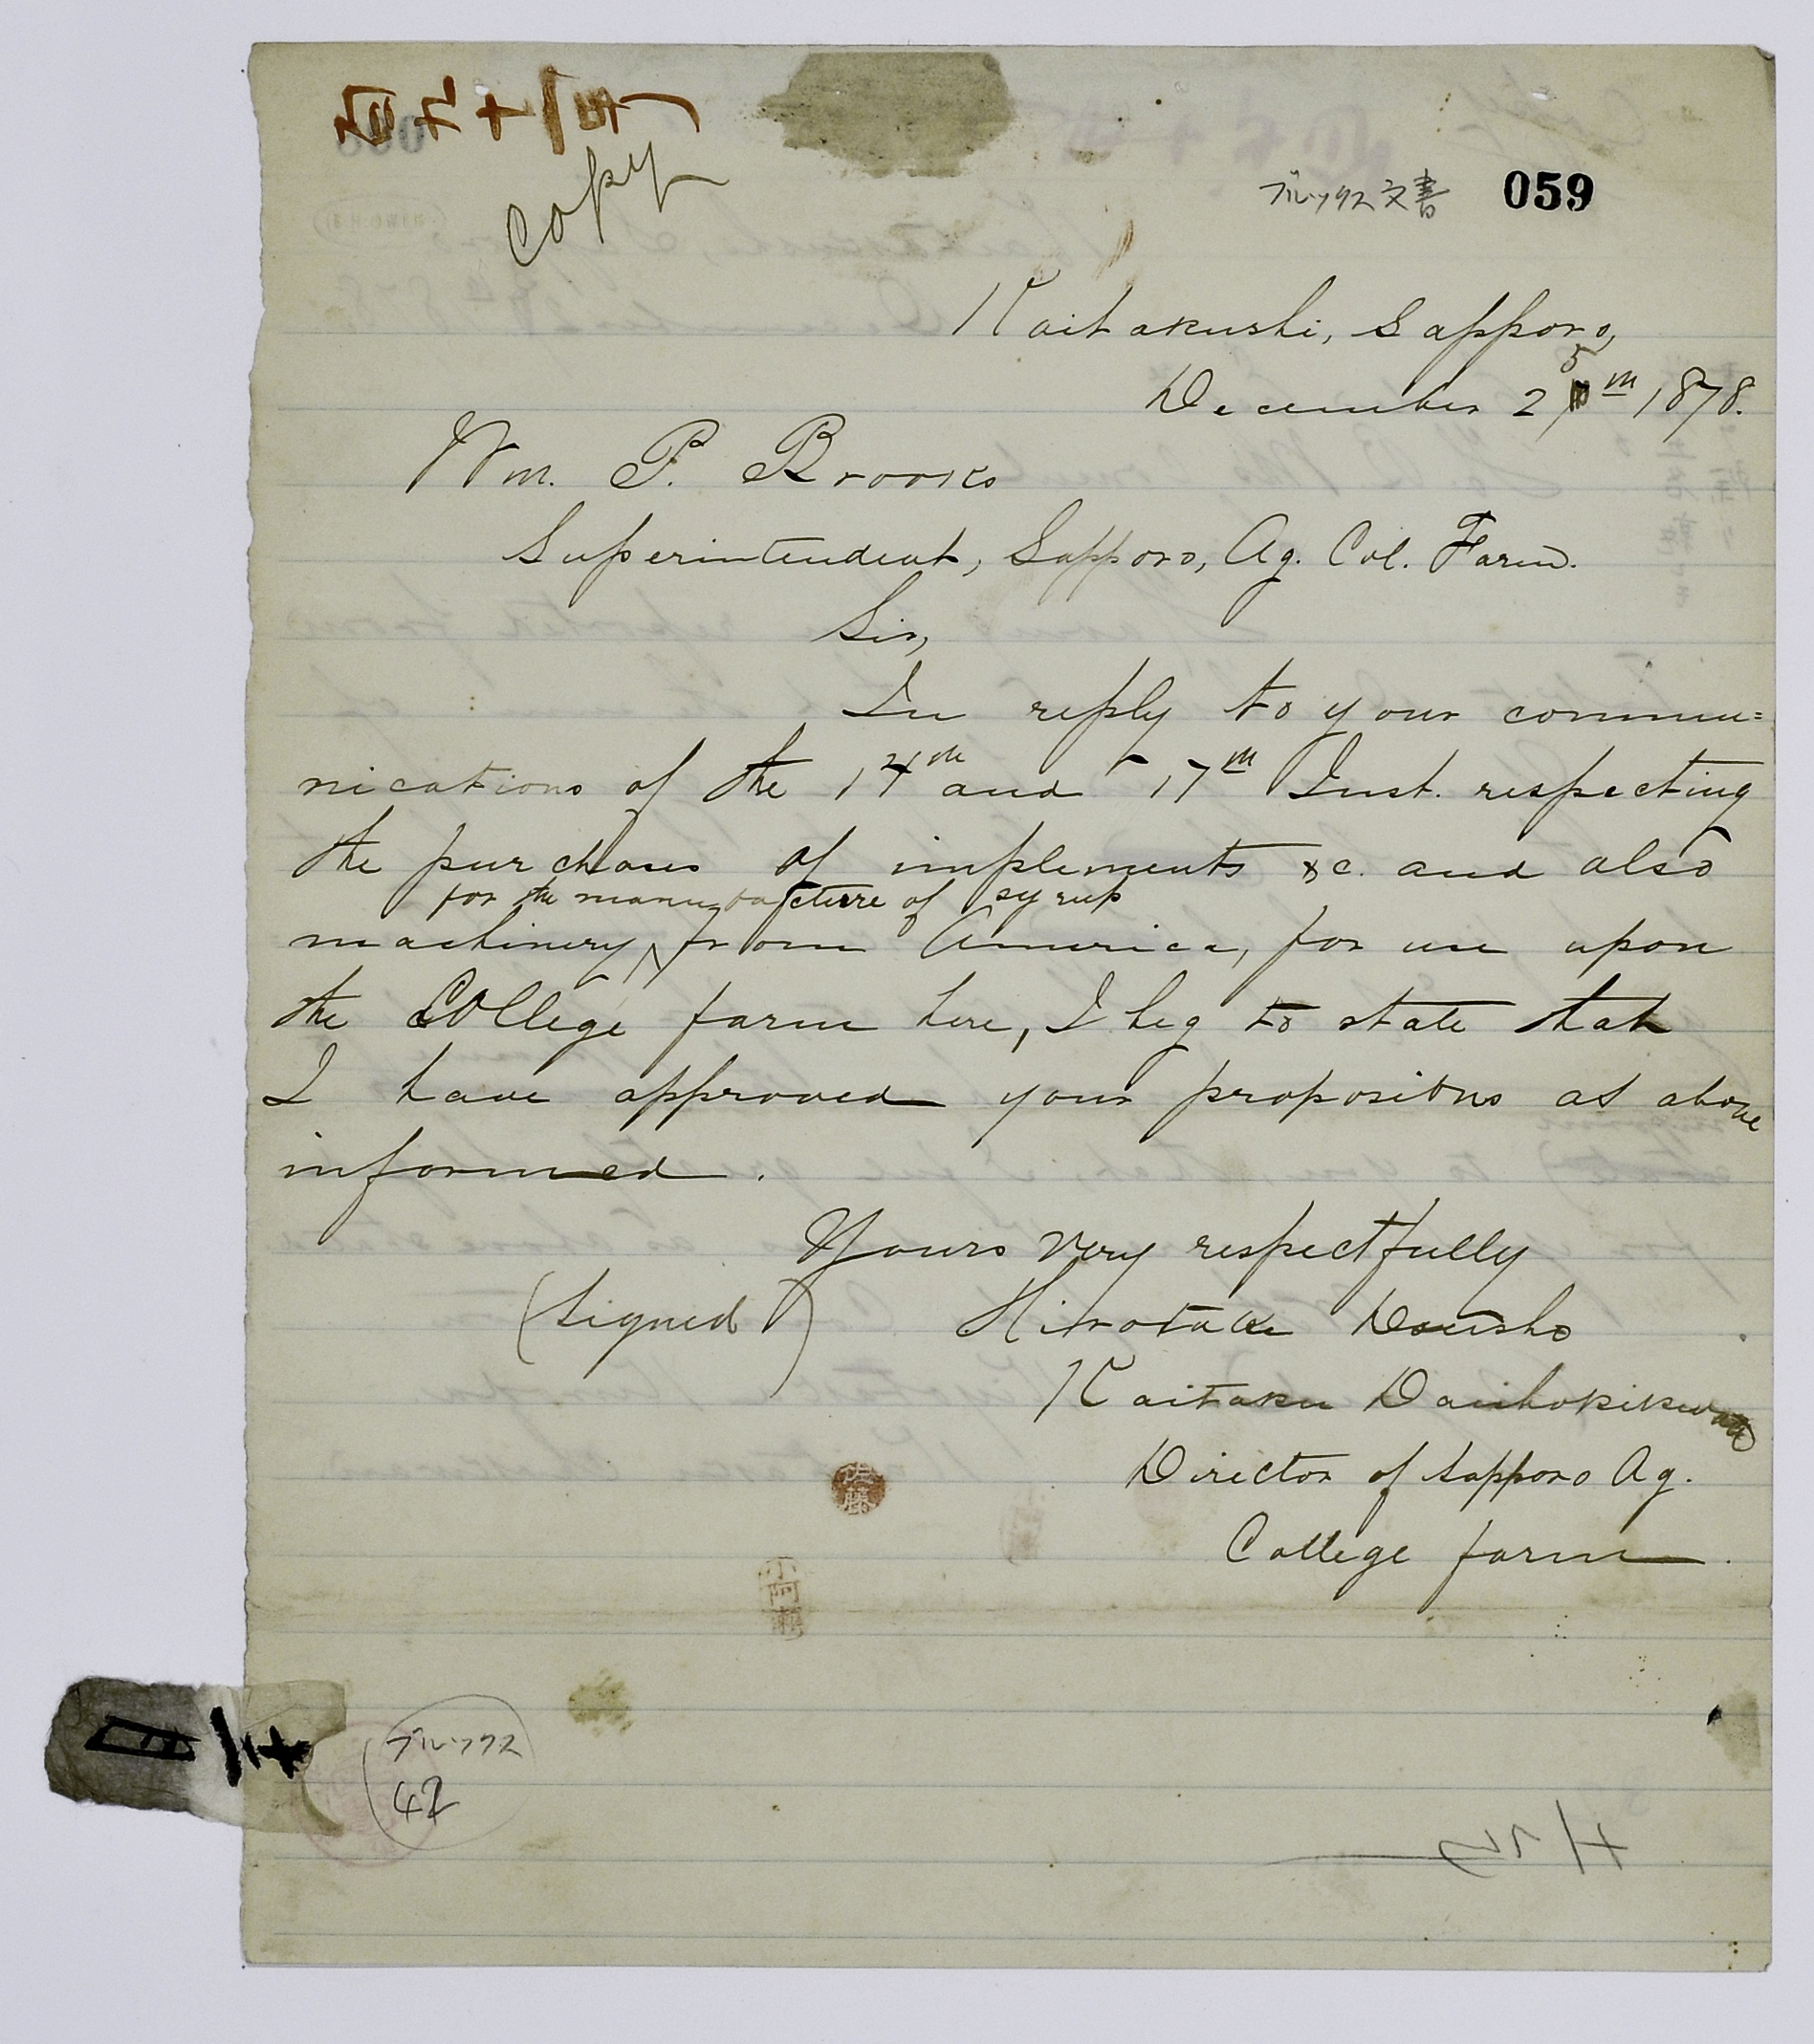 copy
ブルックス文書 059
Kaitakushi, Sapporo,
December 25th 1878.
Wm. P. Brooks
Superintendent, Sapporo, Ag. Col. Farm.
Sir,
In reply to your commu=
nications of the 14th and 17th Inst. respecting
the purchases of implements &c. and also
for the manufacture of syrup
machinery, from America, for use upon
the College farm here, I beg to state that
I have approved your propositions as above
informed.
Yours very respectfully
(Signed) Hirotake Dzusho
Kaitaku Daishokikwan
Director of Sapporo Ag.
College farm.
佐藤
ブルックス
42